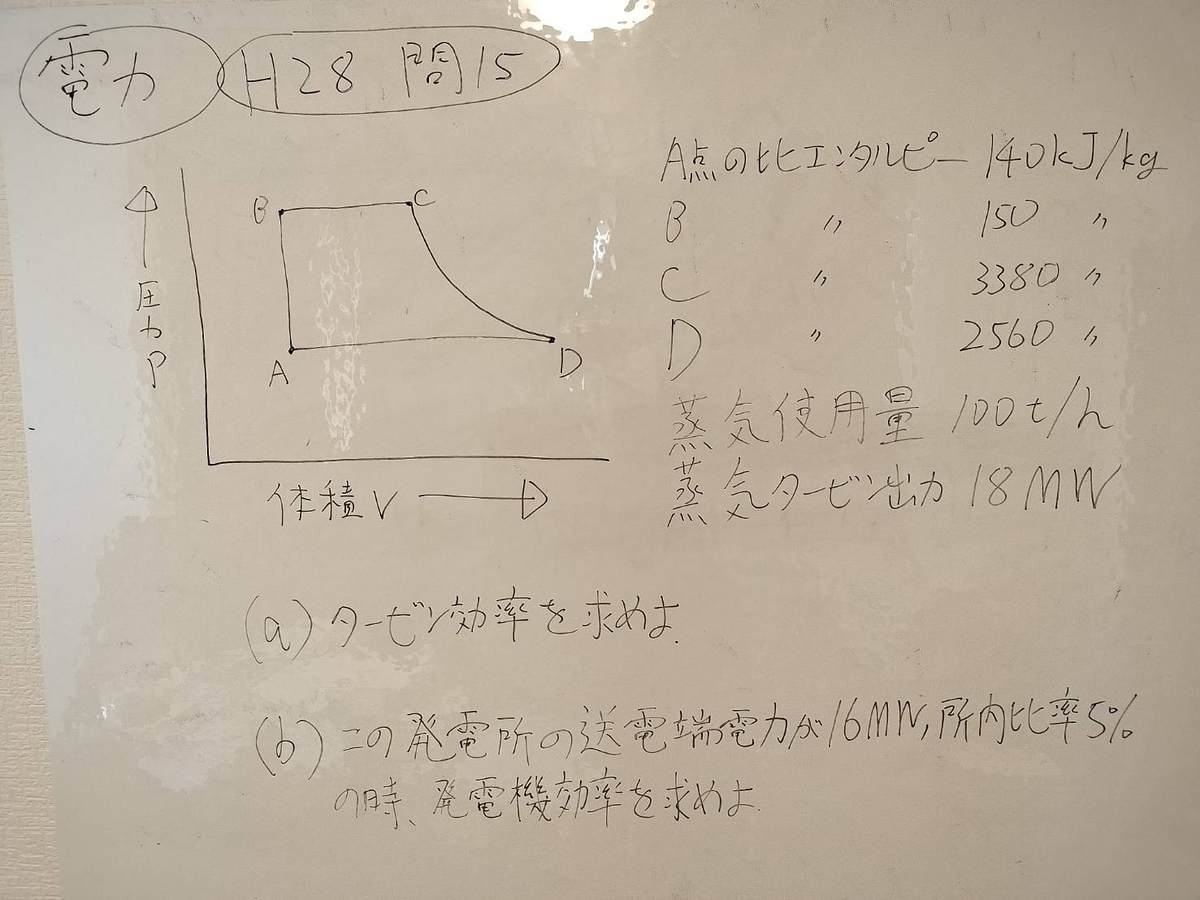 電力 H28 問15
A点の比エンタルピー 140kJ/kg
B 〃 150 〃
C 〃 3380 〃
D 〃 2560 〃
蒸気使用量 100t/h
蒸気タービン出力 18MW
圧力P
B
C
A
D
体積V
(a) タービン効率を求めよ.
(b) この発電所の送電端電力が16MW,所内比率5%
の時、発電機効率を求めよ.